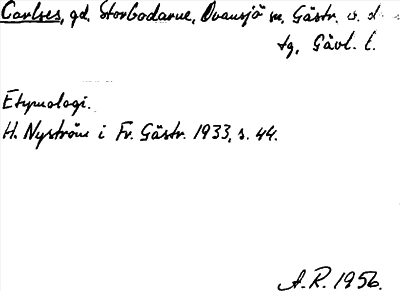 Carlses, gd. Storbodarne, Ovansjö sn, Gästr. ö. d
tg, Gävl. l.
Etymologi.
H. Nyström i Fr. Gästr. 1933, s. 44.
A.R. 1956.